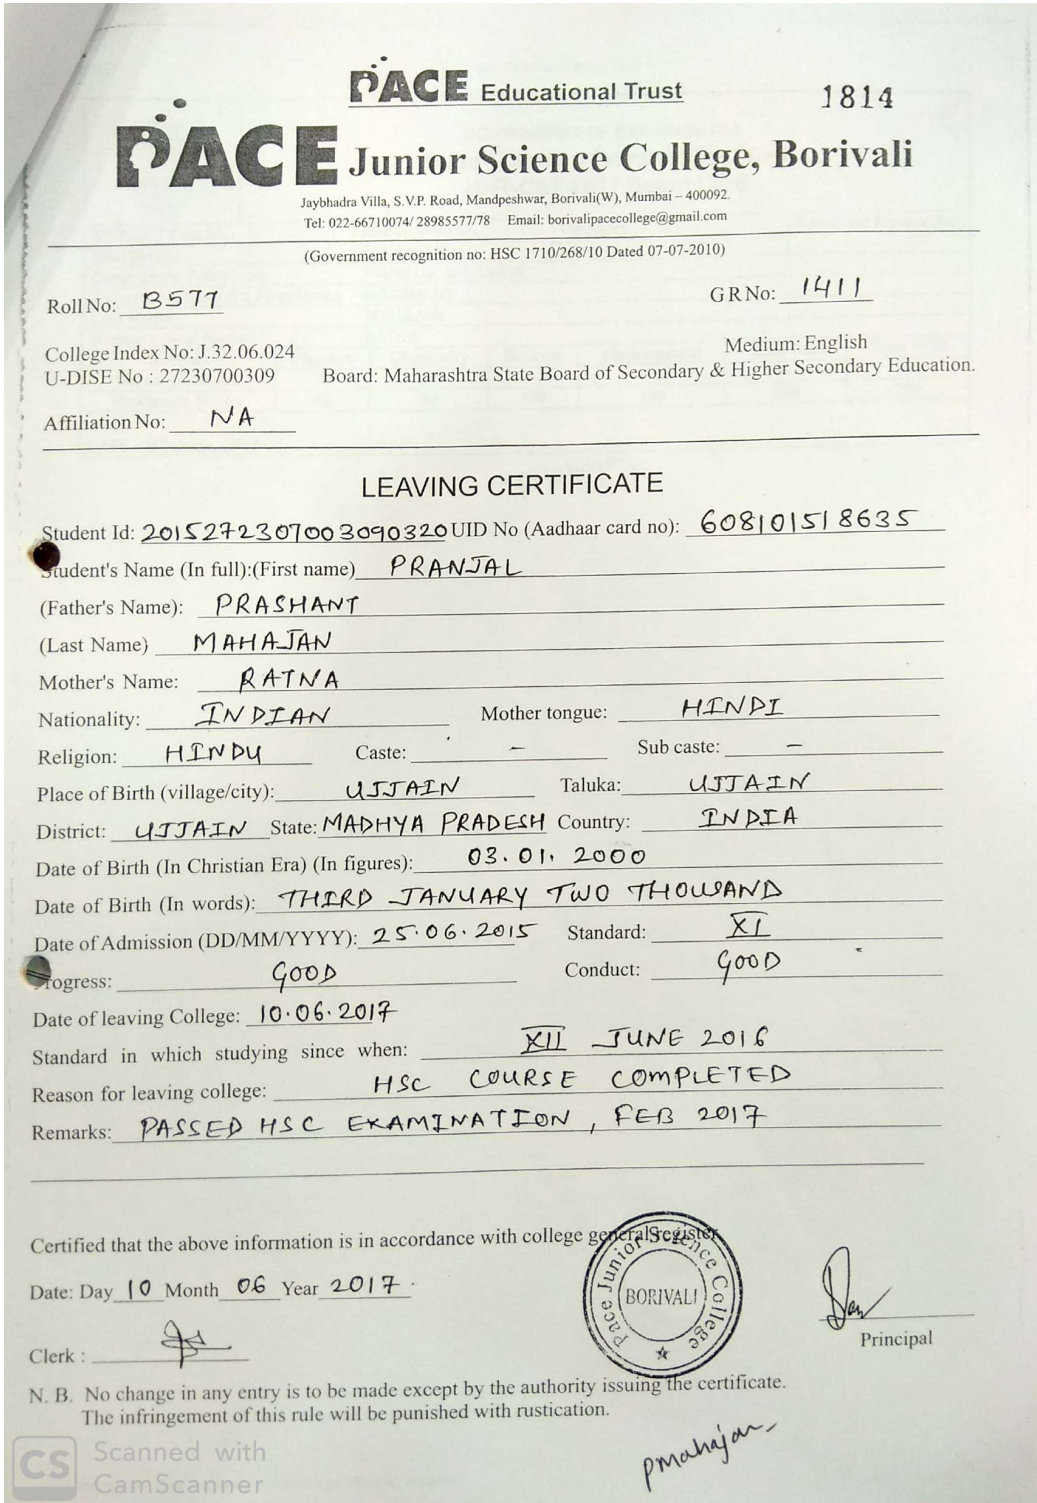 PACE Educational Trust
1814
PACE Junior Science College, Borivali
Jaybhadra Villa, S.V.P. Road, Mandpeshwar, Borivali(W), Mumbai – 400092.
Tel: 022-66710074/ 28985577/78 Email: borivalipacecollege@gmail.com
(Government recognition no: HSC 1710/268/10 Dated 07-07-2010)
Roll No: B577 G R No: 1411
College Index No: J.32.06.024 Medium: English
U-DISE No : 27230700309 Board: Maharashtra State Board of Secondary & Higher Secondary Education.
Affiliation No: NA
LEAVING CERTIFICATE
Student Id: 2015272307003090320 UID No (Aadhaar card no): 608101518635
Student's Name (In full):(First name) PRANJAL
(Father's Name): PRASHANT
(Last Name) MAHAJAN
Mother's Name: RATNA
Nationality: INDIAN Mother tongue: HINDI
Religion: HINDU Caste: – Sub caste: –
Place of Birth (village/city): UJJAIN Taluka: UJJAIN
District: UJJAIN State: MADHYA PRADESH Country: INDIA
Date of Birth (In Christian Era) (In figures): 03.01.2000
Date of Birth (In words): THIRD JANUARY TWO THOUSAND
Date of Admission (DD/MM/YYYY): 25.06.2015 Standard: XI
Progress: GOOD Conduct: GOOD
Date of leaving College: 10.06.2017
Standard in which studying since when: XII JUNE 2016
Reason for leaving college: HSC COURSE COMPLETED
Remarks: PASSED HSC EXAMINATION, FEB 2017
Certified that the above information is in accordance with college general register
Date: Day 10 Month 06 Year 2017
Pace Junior Science College
BORIVALI
Principal
Clerk :
N. B. No change in any entry is to be made except by the authority issuing the certificate.
The infringement of this rule will be punished with rustication.
pmahajan
CS Scanned with
CamScanner